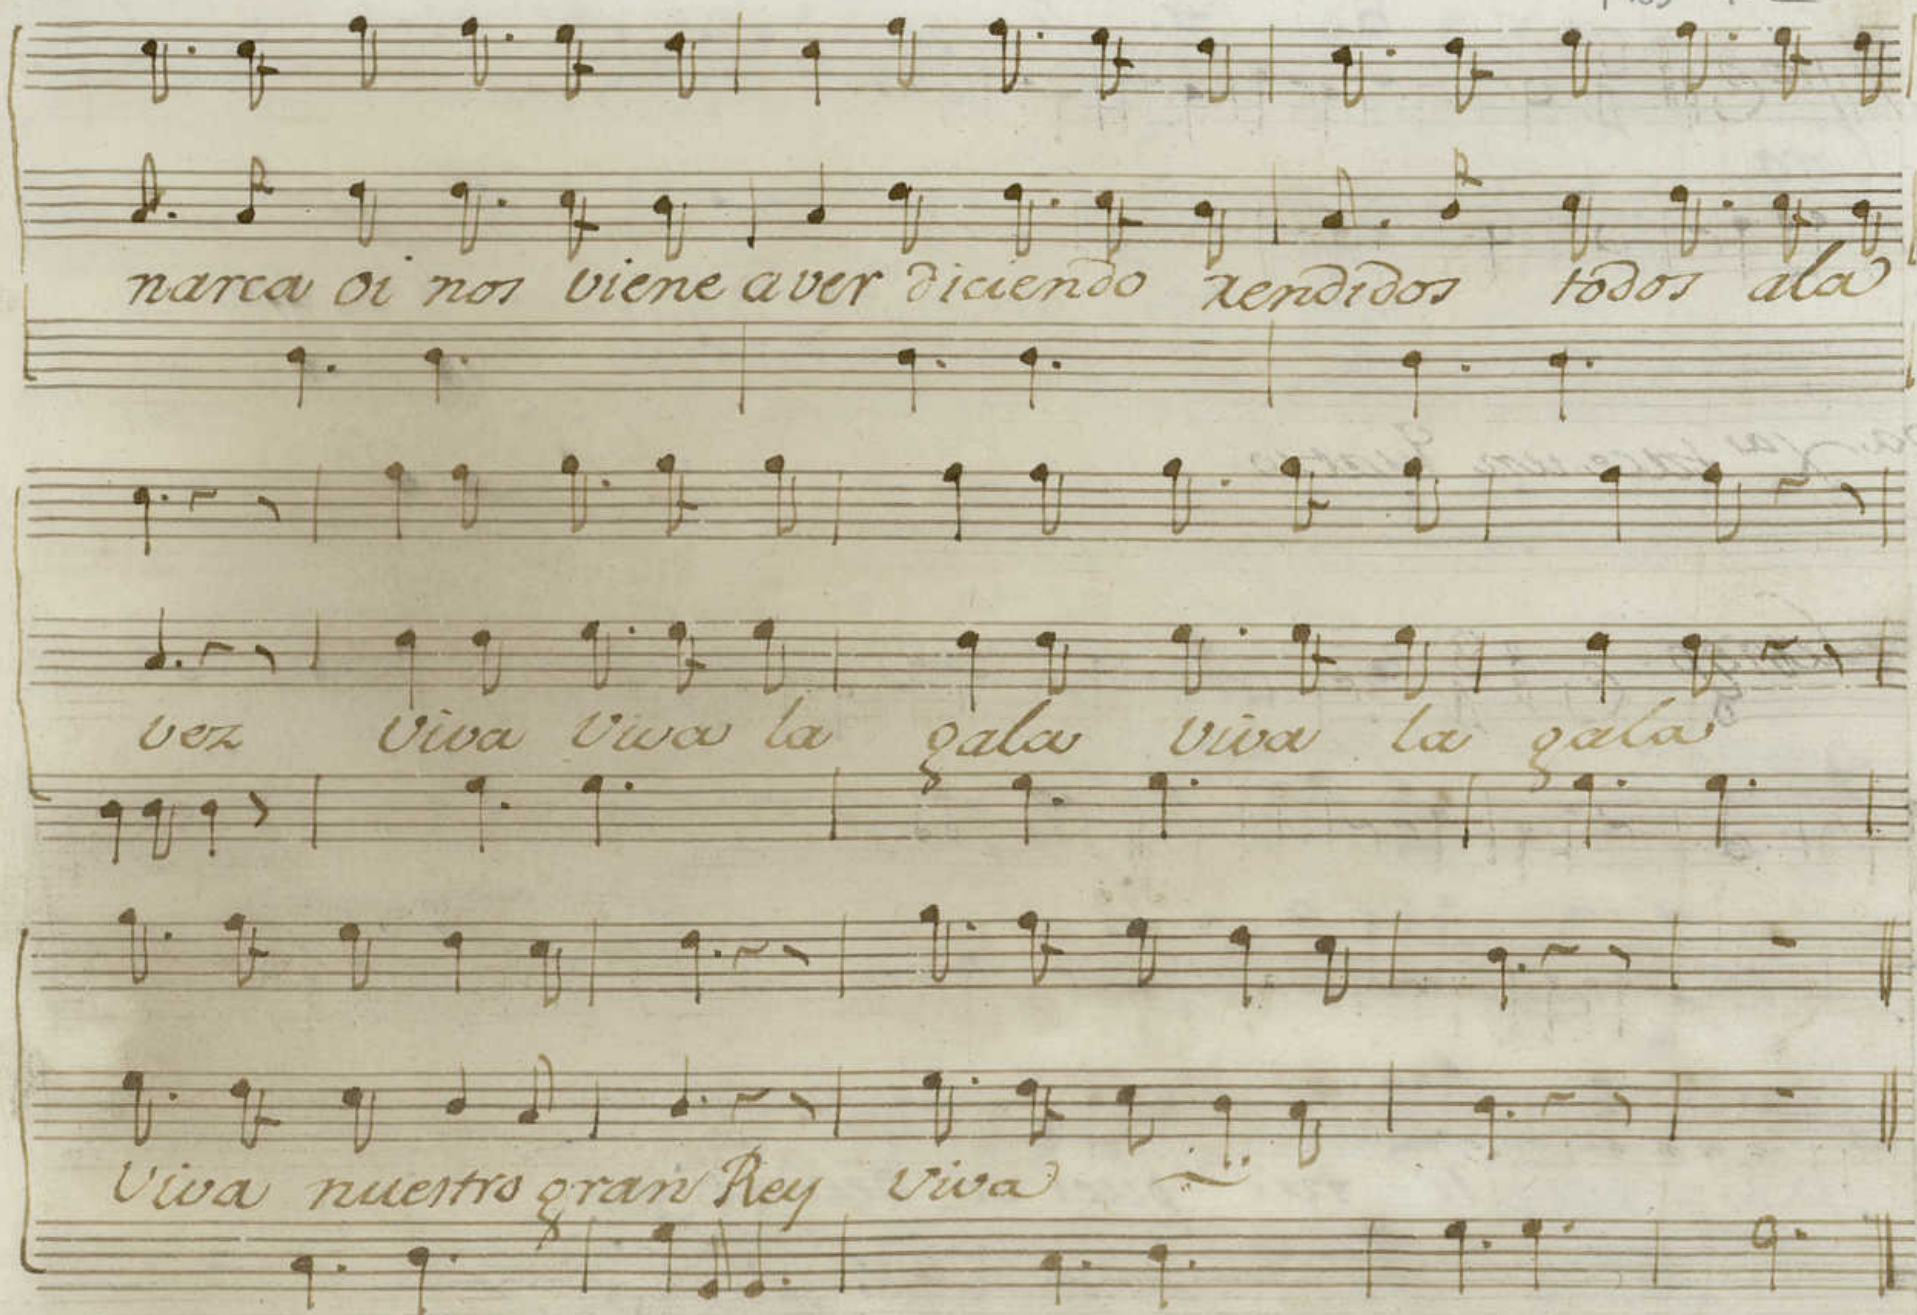 narca oi nos viene aver diciendo rendidos todos ala
vez viva viva la gala viva la gala
Viva nuestro gran Rey viva